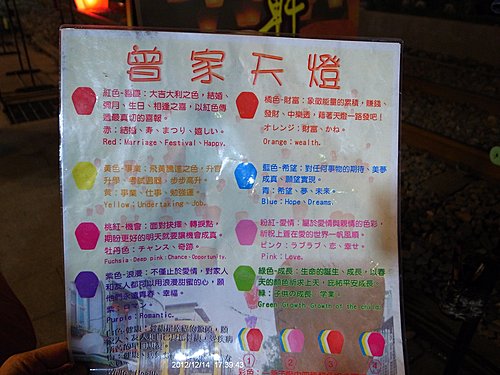 曾家天燈
紅色-囍慶：大吉大利之色，結婚、
彌月、生日、相逢之喜，以紅色傳
遞最真切的喜報。
赤：結婚、寿、まつり、嬉しい。
Red：Marriage、Festival、Happy.
橘色-財富：象徵能量的累積，賺錢、
發財、中樂透，藉著天燈一路發吧！
オレンジ：財富、かね。
Orange：wealth.
黃色-事業：飛黃騰達之色，升官、
升學、考試過關，步步高升。
黄：事業、仕事、勉強運。
Yellow：Undertaking、Job.
藍色-希望：對任何事物的期待、美夢
成真、願望實現。
青：希望、夢、未來。
Blue：Hope、Dreams.
桃紅-機會：面對抉擇、轉捩點，
期盼更好的明天就要讓機會成真。
牡丹色：チャンス、奇跡。
Fuchsia-Deep pink：Chance、Opportunity.
粉紅-愛情：屬於愛情與親情的色彩，
祈祝上蒼在愛的世界一帆風順。
ピンク：ラブラブ、恋、幸せ。
Pink：Love.
紫色-浪漫：不僅止於愛情，對家人
和友人都可以用浪漫甜蜜的心，願
他們永遠青春、幸福。
Purple：Romantic.
綠色-成長：生命的誕生、成長，以春
天的顏色祈求上天，庇祐平安成長。
緑：子供の成長、学業。
Green growth growth of the child.
① ② ③ ④
2012/12/14 17:39:43